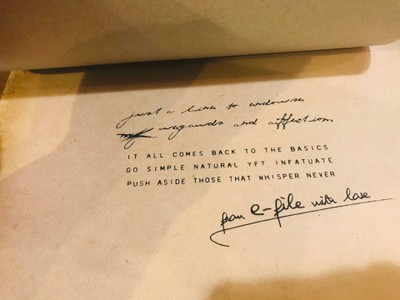 just a line to endowse
my regards and affection.
IT ALL COMES BACK TO THE BASICS
GO SIMPLE NATURAL YFT INFATUATE
PUSH ASIDE THOSE THAT WHISPER NEVER
from e-file with love